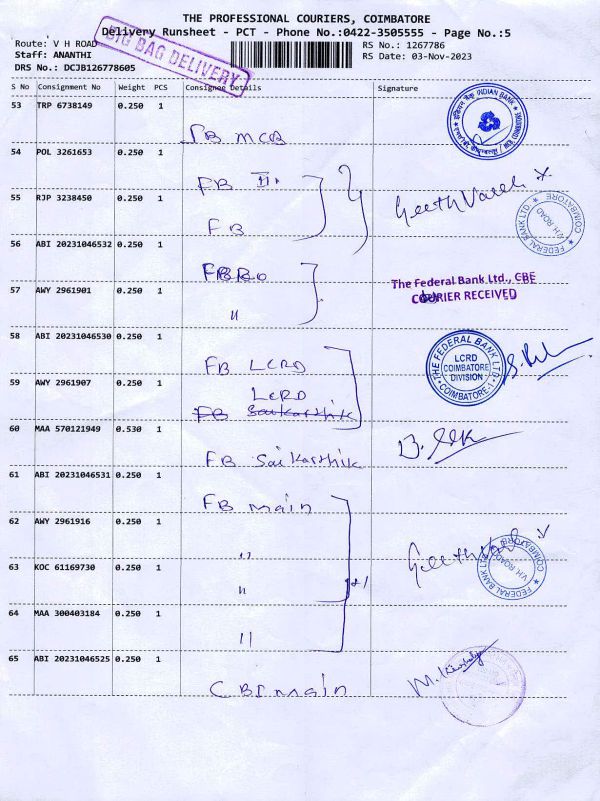 THE PROFESSIONAL COURIERS, COIMBATORE
Delivery Runsheet - PCT - Phone No.:0422-3505555 - Page No.:5
BIG BAG DELIVERY
Route: V H ROAD
RS No.: 1267786
Staff: ANANTHI
RS Date: 03-Nov-2023
DRS No.: DCJB126778605
S No Consignment No Weight PCS Consignee Details Signature
53 TRP 6738149 0.250 1
INDIAN BANK
MCB
54 POL 3261653 0.250 1
FB II.
55 RJP 3238450 0.250 1
FB
FEDERAL BANK LTD. V.H ROAD COIMBATORE
56 ABI 20231046532 0.250 1
FBRO
The Federal Bank Ltd., CBE
57 AWY 2961901 0.250 1
COURIER RECEIVED
"
58 ABI 20231046530 0.250 1
FB LCRD
THE FEDERAL BANK LTD. LCRD COIMBATORE DIVISION COIMBATORE-1
59 AWY 2961907 0.250 1
LCRD
FB Saikarthik
60 MAA 570121949 0.530 1
FB Saikarthik
61 ABI 20231046531 0.250 1
FB main
62 AWY 2961916 0.250 1
"
FEDERAL BANK LTD. V.H ROAD COIMBATORE
63 KOC 61169730 0.250 1
"
64 MAA 300403184 0.250 1
"
65 ABI 20231046525 0.250 1
CBI main